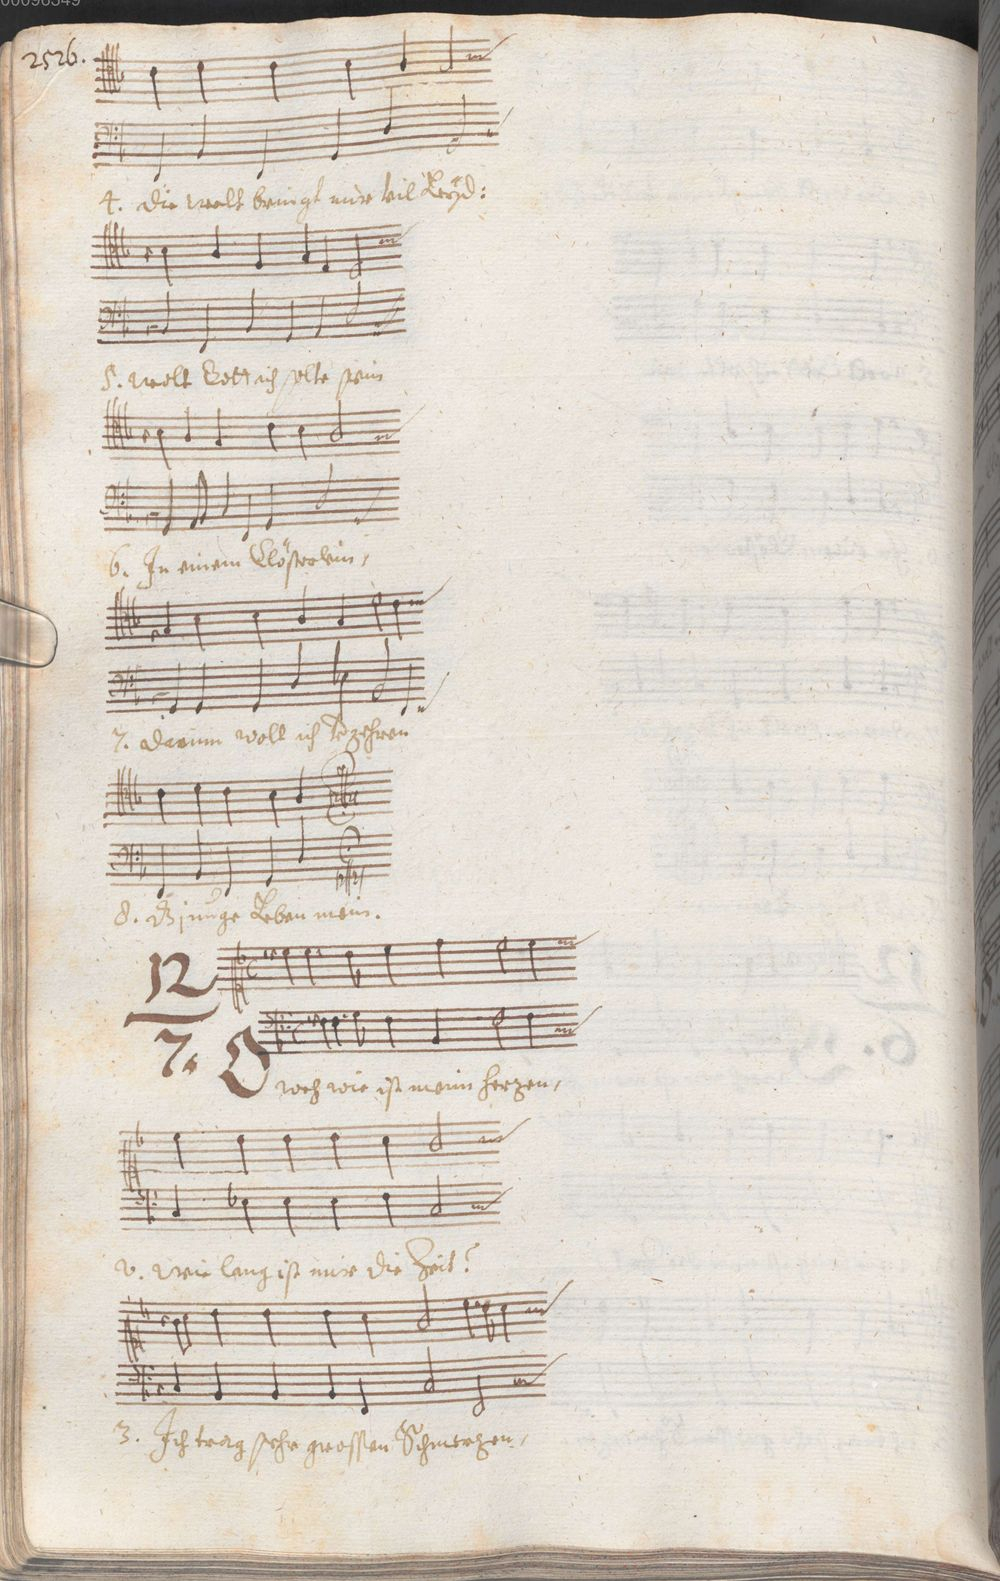 00096349
2526.
4. die welt bringt mir vil Leyd:
5. wolt Gott ich solte sein
6. In einem Clösterlein,
7. darinn wolt ich verzehren
8. Dz junge Leben mein.
12
7. O weh wie ist meim herzen,
2. wie lang ist mir die Zeit?
3. Ich trag sehr grossen Schmerzen,